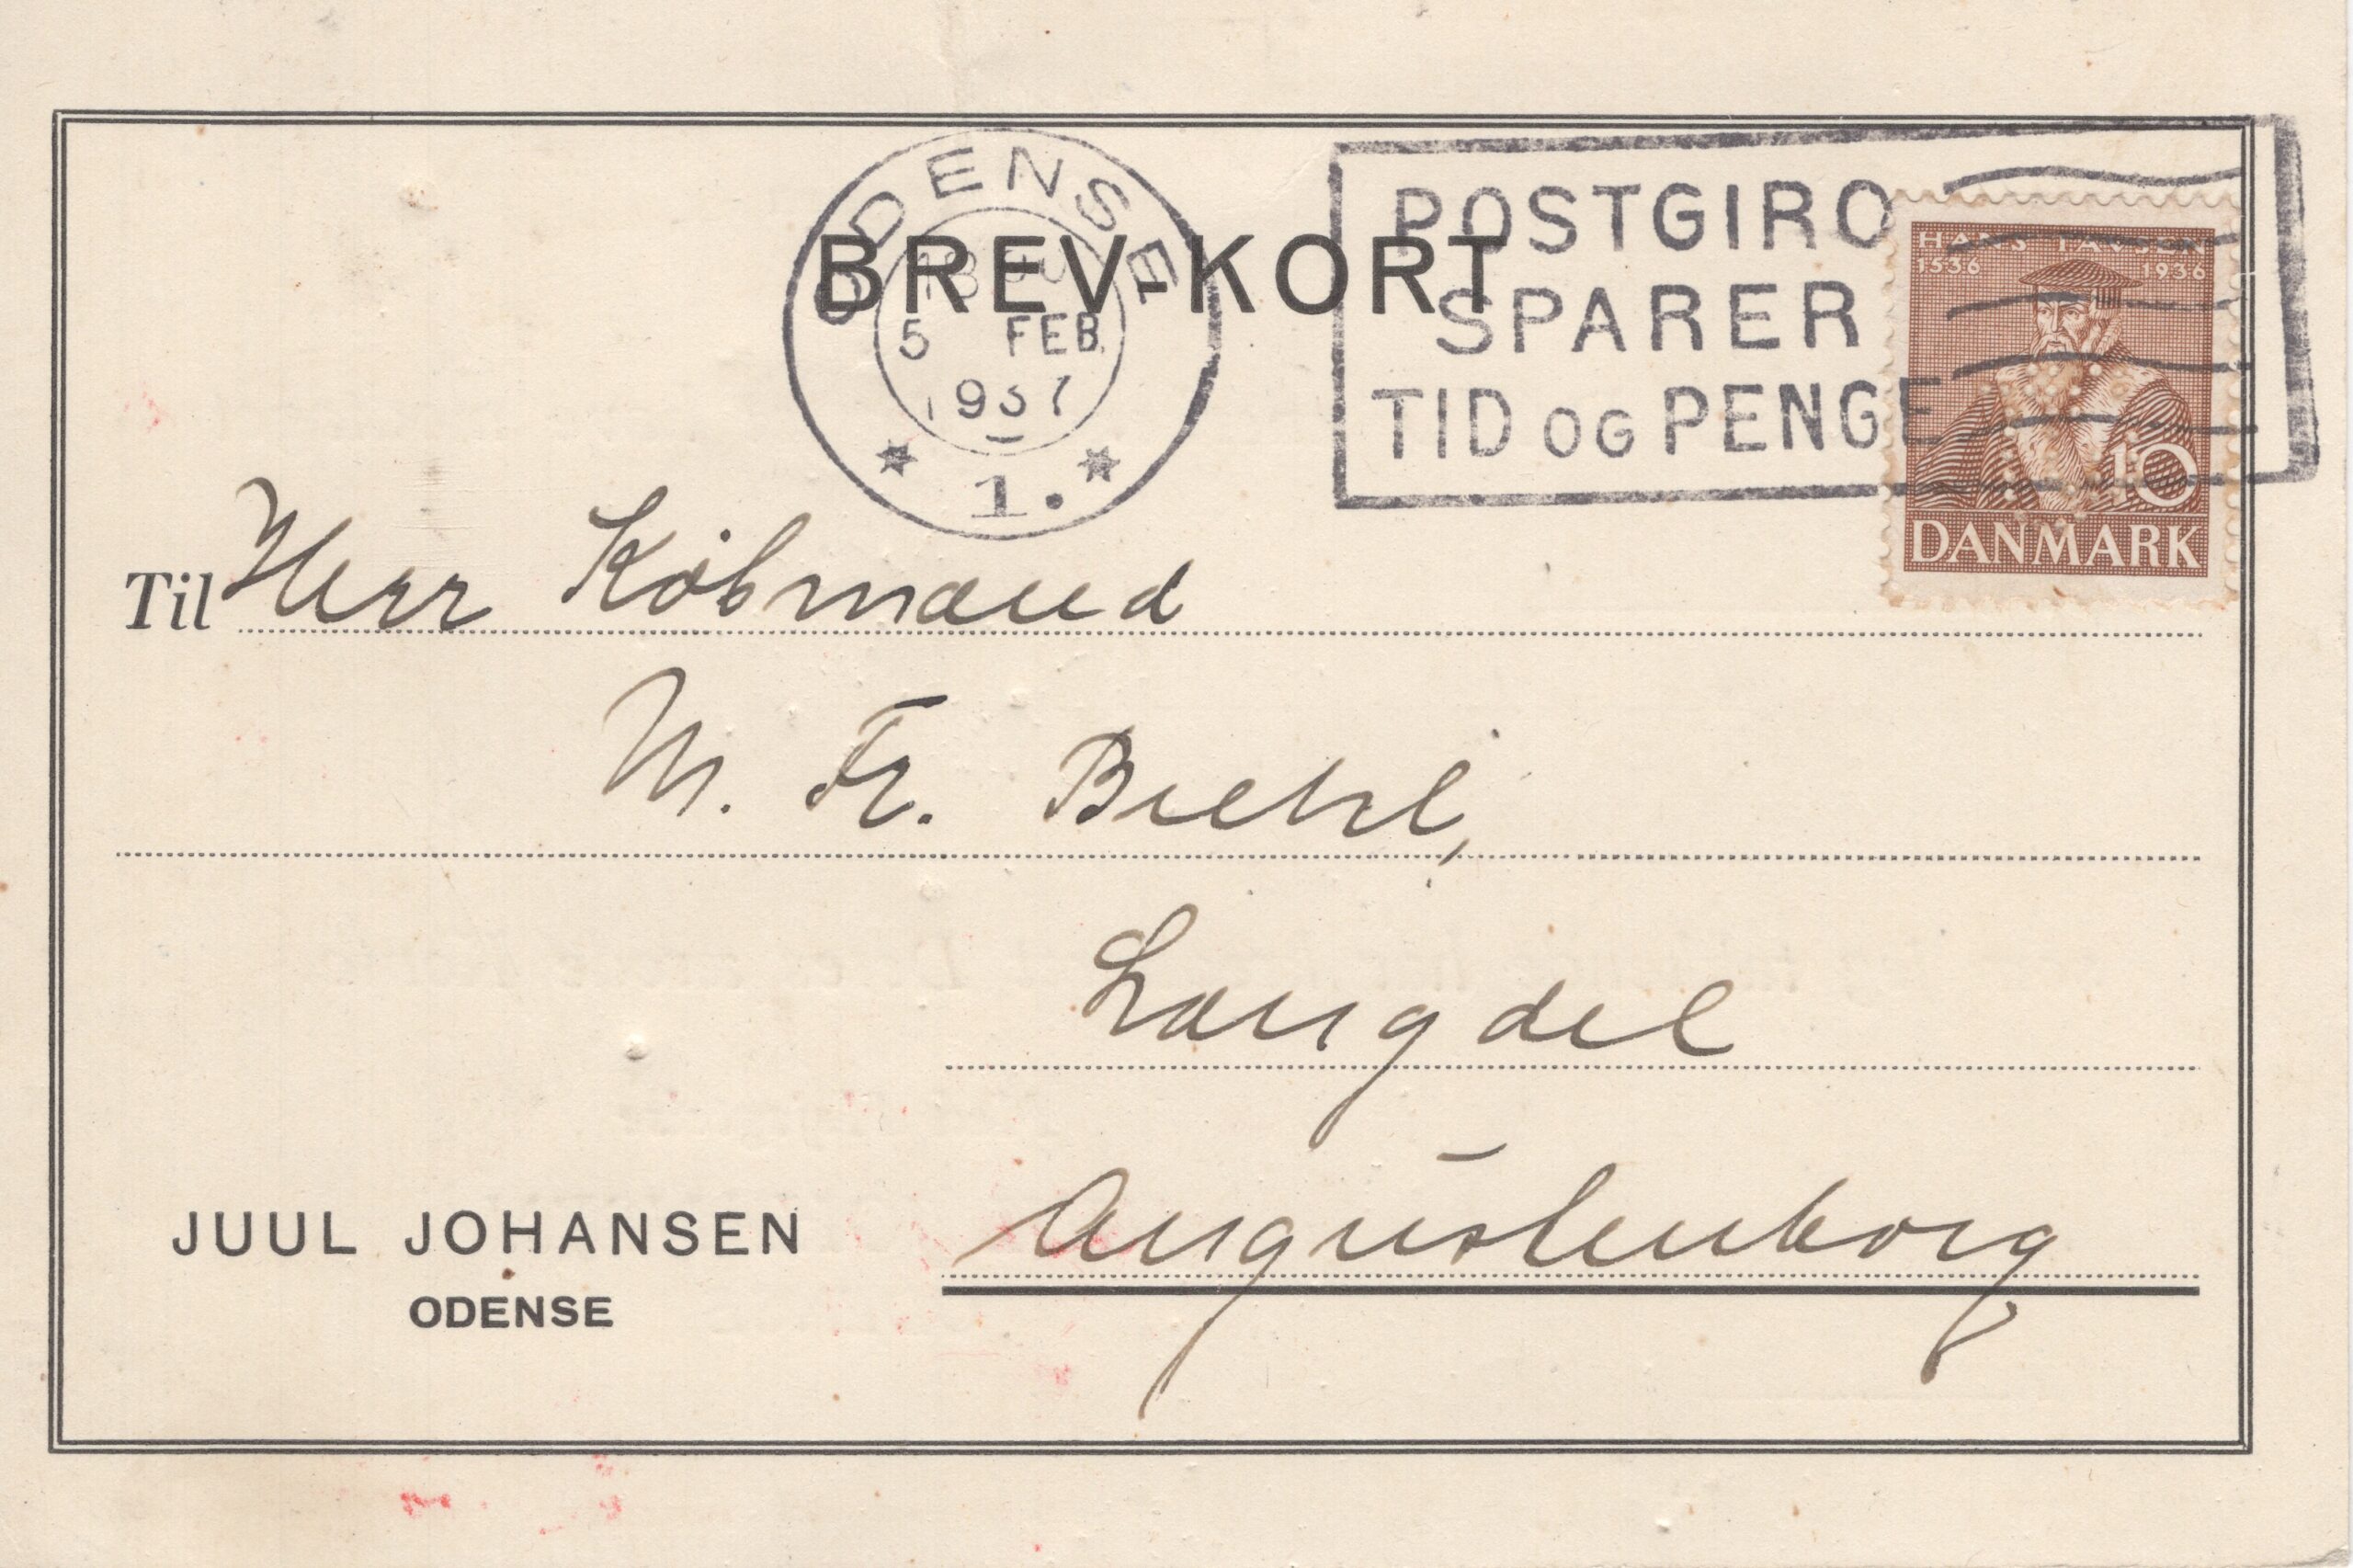 BREVKORT
ODENSE
5 FEB
1937
1.
POSTGIRO
SPARER
TID OG PENGE
HANS TAVSEN
1536 1936
10
DANMARK
Til Herr Købmand
M. Fr. Biehl,
Langdel
Augustenborg
JUUL JOHANSEN
ODENSE